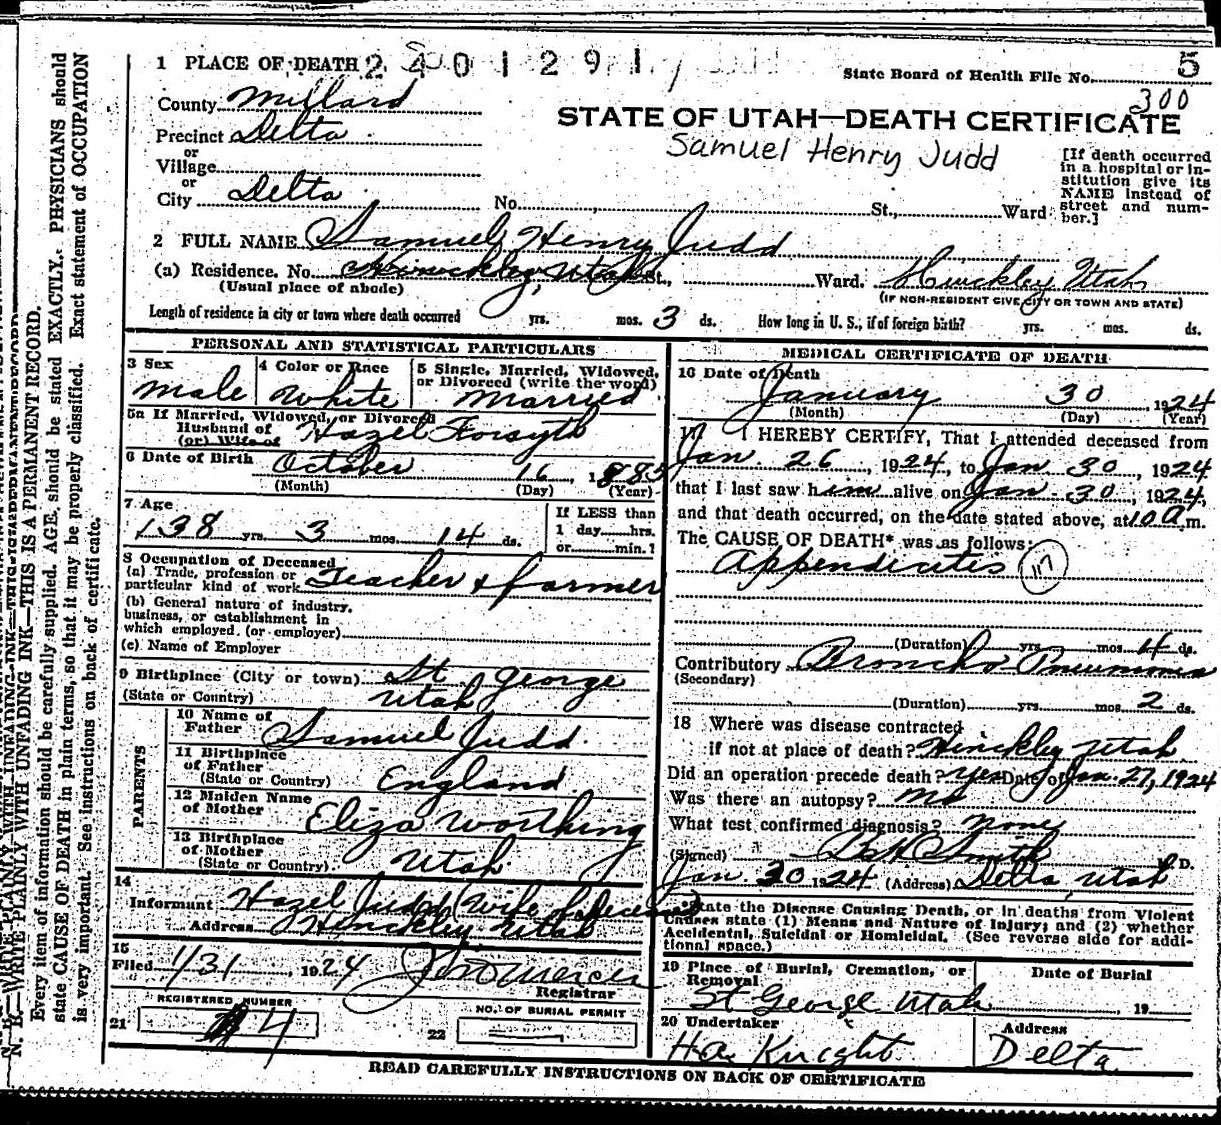 1 PLACE OF DEATH 2 4 0 1 2 9 1
State Board of Health File No. 5
300
County Millard
STATE OF UTAH—DEATH CERTIFICATE
Precinct Delta
or
Village
or
City Delta No. St., Ward
Samuel Henry Judd
[If death occurred in a hospital or in-
stitution give its
NAME instead of
street and num-
ber.]
2 FULL NAME Samuel Henry Judd
(a) Residence. No. Hinckley, Utah St., Ward. Hinckley Utah
(Usual place of abode)
(IF NON-RESIDENT GIVE CITY OR TOWN AND STATE)
Length of residence in city or town where death occurred yrs. mos. 3 ds. How long in U. S., if of foreign birth? yrs. mos. ds.
PERSONAL AND STATISTICAL PARTICULARS
3 Sex
male
4 Color or Race
White
5 Single, Married, Widowed,
or Divorced (write the word)
Married
5a If Married, Widowed, or Divorced
Husband of
(or) Wife of
Hazel Forsyth
6 Date of Birth October 16, 1885
(Month) (Day) (Year)
7 Age
38 yrs. 3 mos. 14 ds.
If LESS than
1 day hrs.
or min.?
8 Occupation of Deceased
(a) Trade, profession or
particular kind of work Teacher & farmer
(b) General nature of industry,
business, or establishment in
which employed (or employer)
(c) Name of Employer
9 Birthplace (City or town) St George
(State or Country) Utah
PARENTS
10 Name of
Father Samuel Judd
11 Birthplace
of Father
(State or Country) England
12 Maiden Name
of Mother Eliza Worthing
13 Birthplace
of Mother
(State or Country) Utah
14
Informant Hazel Judd (Wife of deceased)
Address Hinckley Utah
15
Filed 1/31, 1924
Registrar
REGISTERED NUMBER
21 4
NO. OF BURIAL PERMIT
22
MEDICAL CERTIFICATE OF DEATH
16 Date of Death
January 30, 1924
(Month) (Day) (Year)
17 I HEREBY CERTIFY, That I attended deceased from
Jan. 26, 1924, to Jan 30, 1924
that I last saw him alive on Jan. 30, 1924,
and that death occurred, on the date stated above, at 10 a m.
The CAUSE OF DEATH* was as follows:
Appendicites 117
(Duration) yrs. mos. 4 ds.
Contributory Broncho Pneumonia
(Secondary)
(Duration) yrs. mos. 2 ds.
18 Where was disease contracted
if not at place of death? Hinckley Utah
Did an operation precede death? Yes Date of Jan. 27, 1924
Was there an autopsy? no
What test confirmed diagnosis? none
(Signed) Smith M. D.
Jan. 30 1924 (Address) Delta, Utah
*State the Disease Causing Death, or in deaths from Violent
Causes state (1) Means and Nature of Injury; and (2) whether
Accidental, Suicidal or Homicidal. (See reverse side for addi-
tional space.)
19 Place of Burial, Cremation, or
Removal
St George Utah
Date of Burial
19
20 Undertaker
H a Knight
Address
Delta
READ CAREFULLY INSTRUCTIONS ON BACK OF CERTIFICATE
N. B.—WRITE PLAINLY WITH UNFADING INK—THIS IS A PERMANENT RECORD.
Every item of information should be carefully supplied. AGE, should be stated EXACTLY. PHYSICIANS should
state CAUSE OF DEATH in plain terms, so that it may be properly classified. Exact statement of OCCUPATION
is very important. See instructions on back of certificate.